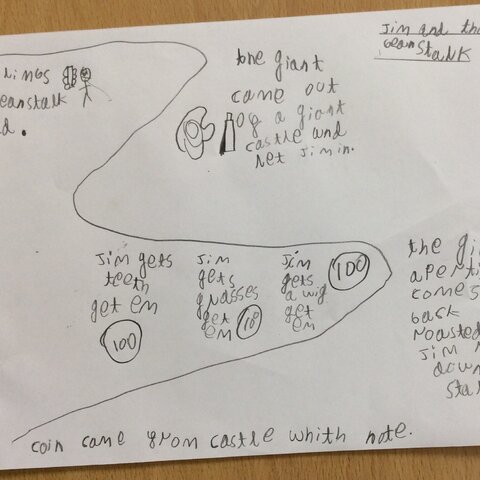 Jim and the
beanstalk
the giant
came out
og a giant
castle and
let Jim in.
eanstalk
d.
Jim gets
teeth
get em
100
Jim
gets
grasses
get
em
10
Jim
gets
a wig
get
em
100
the gi
aperti
comes
back
roasted
Jim
down
Stal
coin came grom castle whith note.